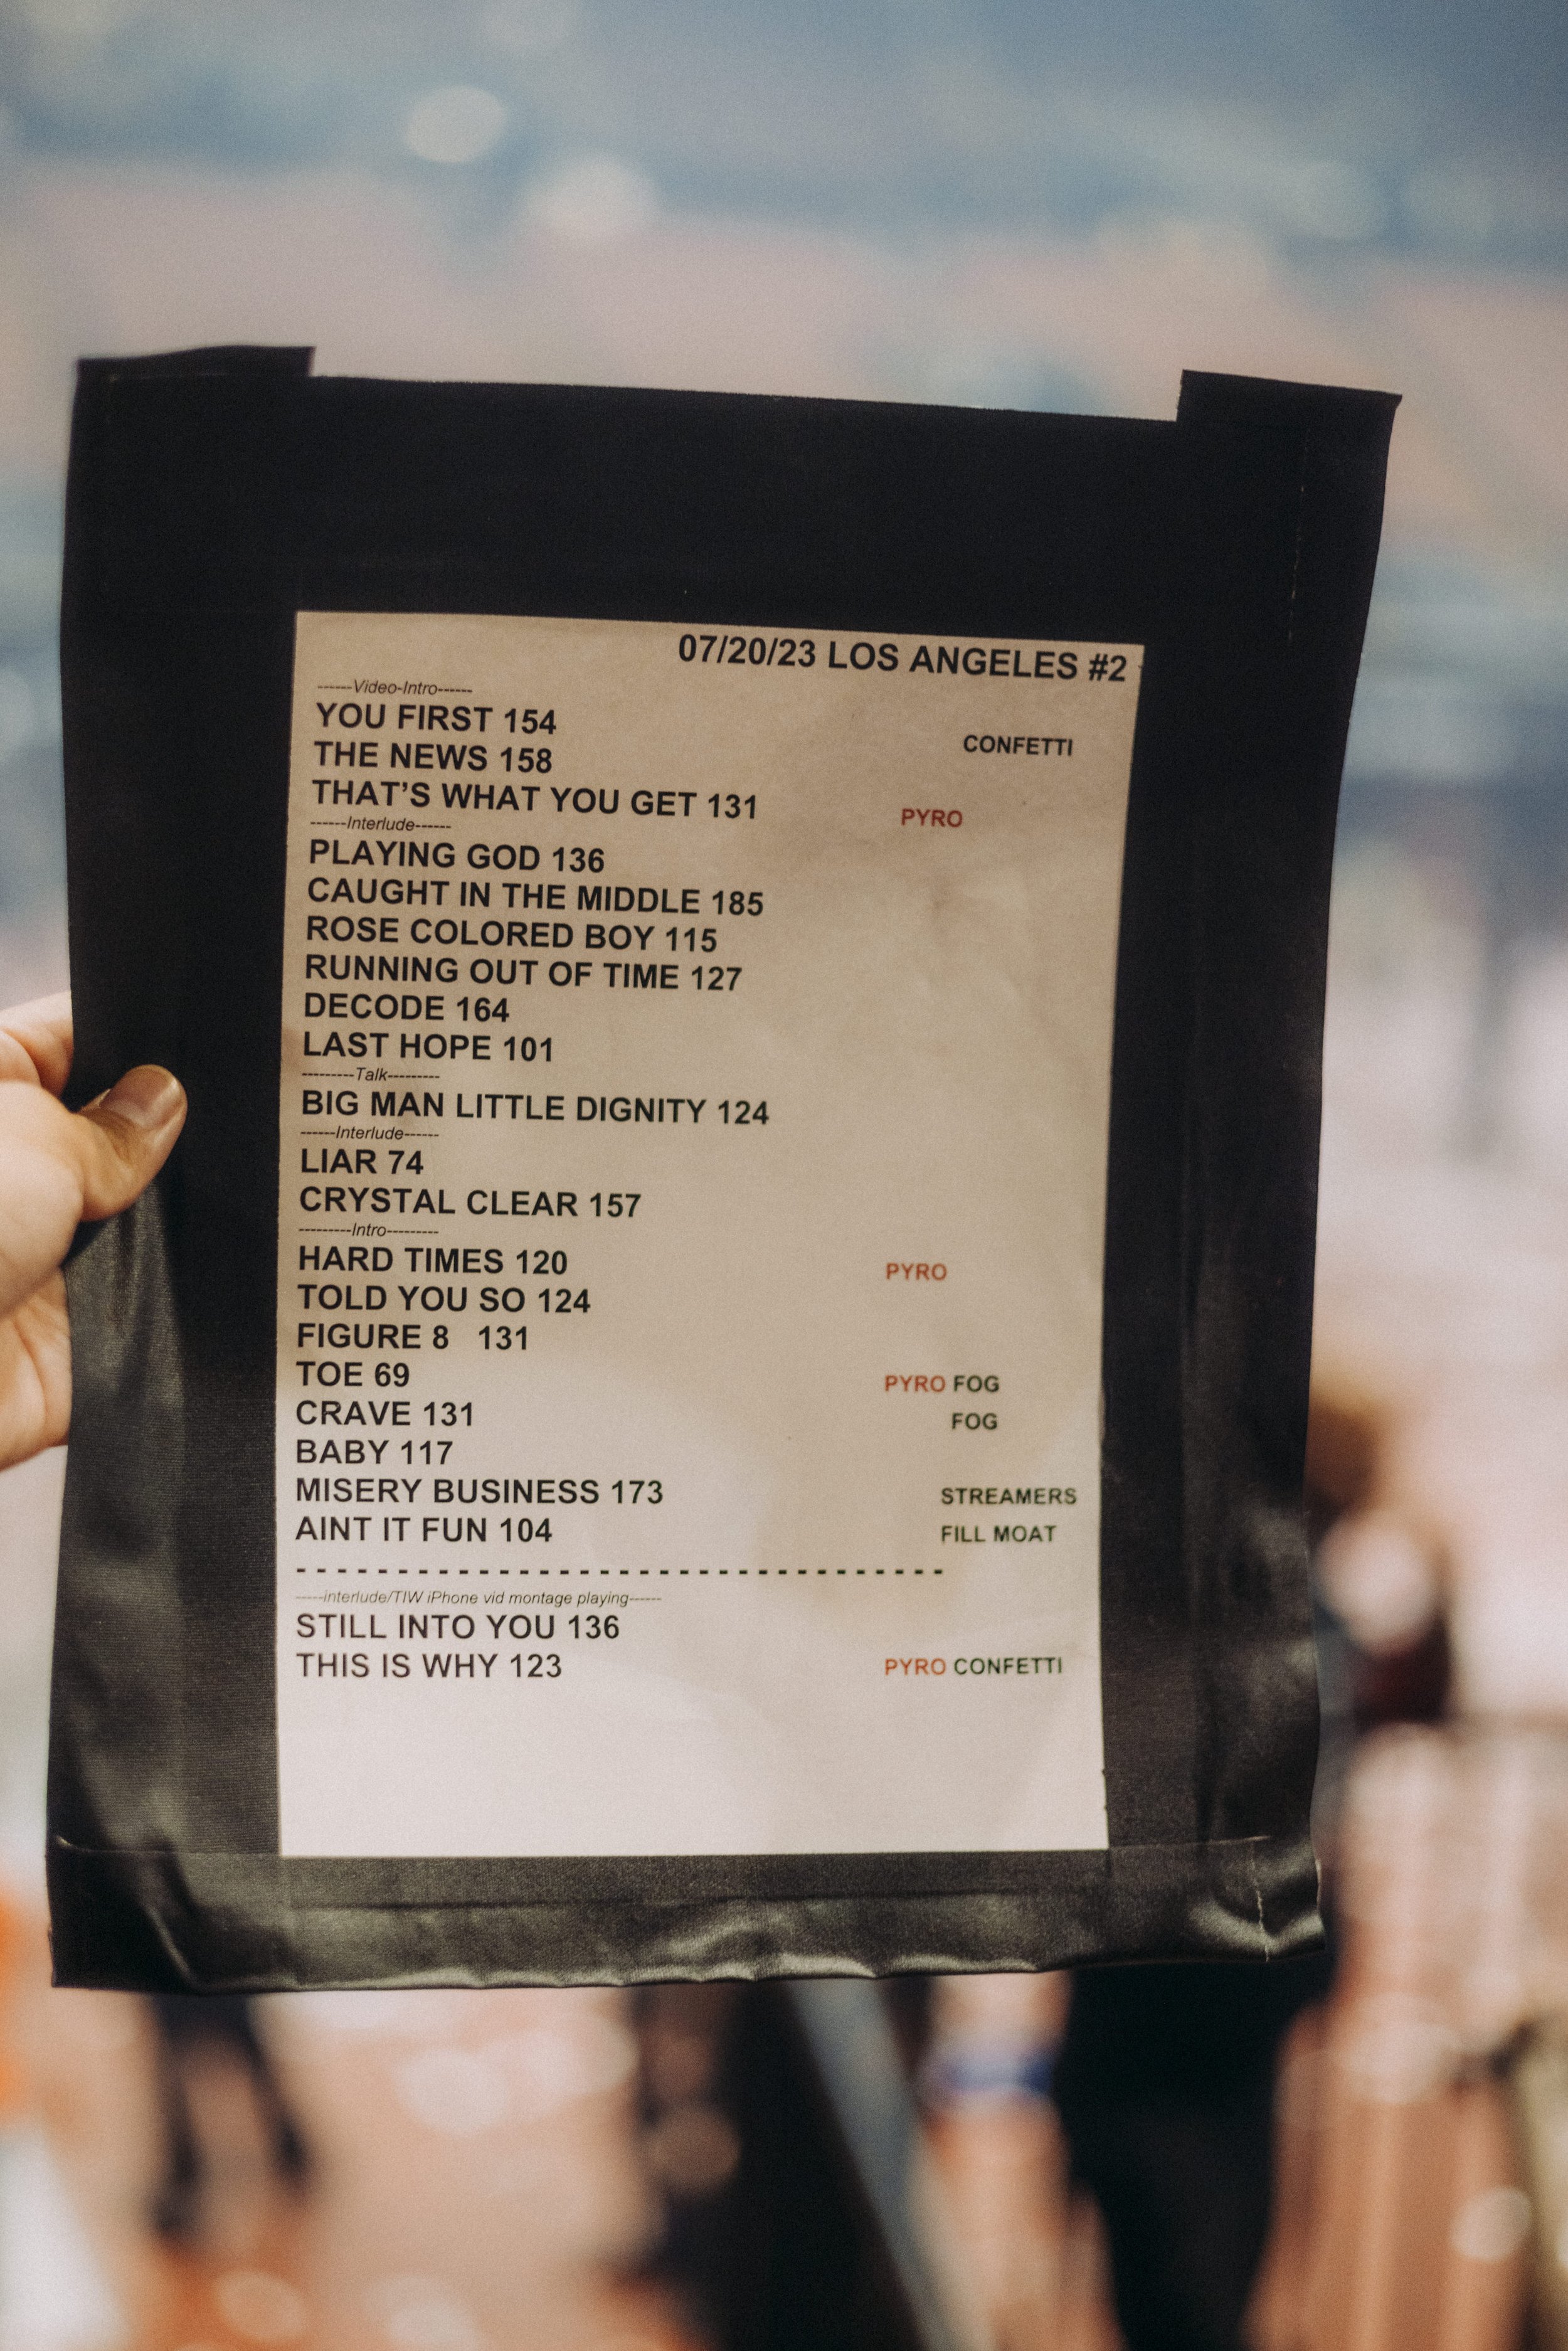 07/20/23 LOS ANGELES #2
------Video-Intro------
YOU FIRST 154
CONFETTI
THE NEWS 158
THAT'S WHAT YOU GET 131 PYRO
------Interlude------
PLAYING GOD 136
CAUGHT IN THE MIDDLE 185
ROSE COLORED BOY 115
RUNNING OUT OF TIME 127
DECODE 164
LAST HOPE 101
---------Talk---------
BIG MAN LITTLE DIGNITY 124
------Interlude------
LIAR 74
CRYSTAL CLEAR 157
---------Intro---------
HARD TIMES 120 PYRO
TOLD YOU SO 124
FIGURE 8 131
TOE 69 PYRO FOG
CRAVE 131 FOG
BABY 117
MISERY BUSINESS 173 STREAMERS
AINT IT FUN 104 FILL MOAT
- - - - - - - - - - - - - - - - - - - - - - - - - - - - - - - -
-----interlude/TIW iPhone vid montage playing------
STILL INTO YOU 136
THIS IS WHY 123 PYRO CONFETTI